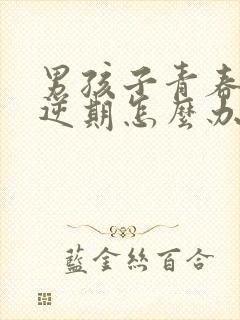 男孩子青春
逆期怎麼办
藍金絲百合